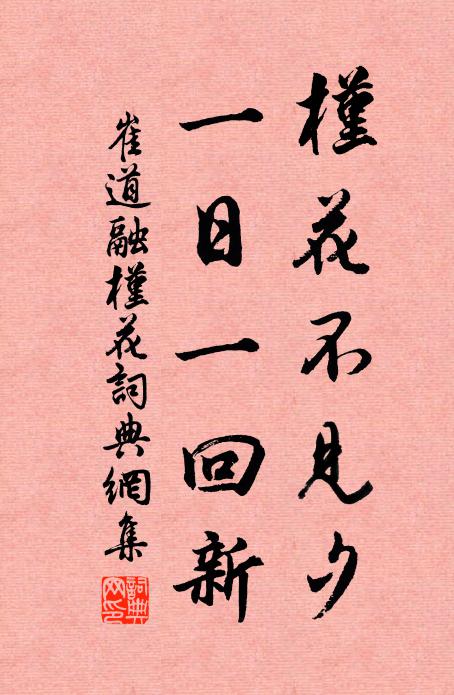 槿花不見夕
一日一回新
崔道融槿花詞典網集
詞典網印